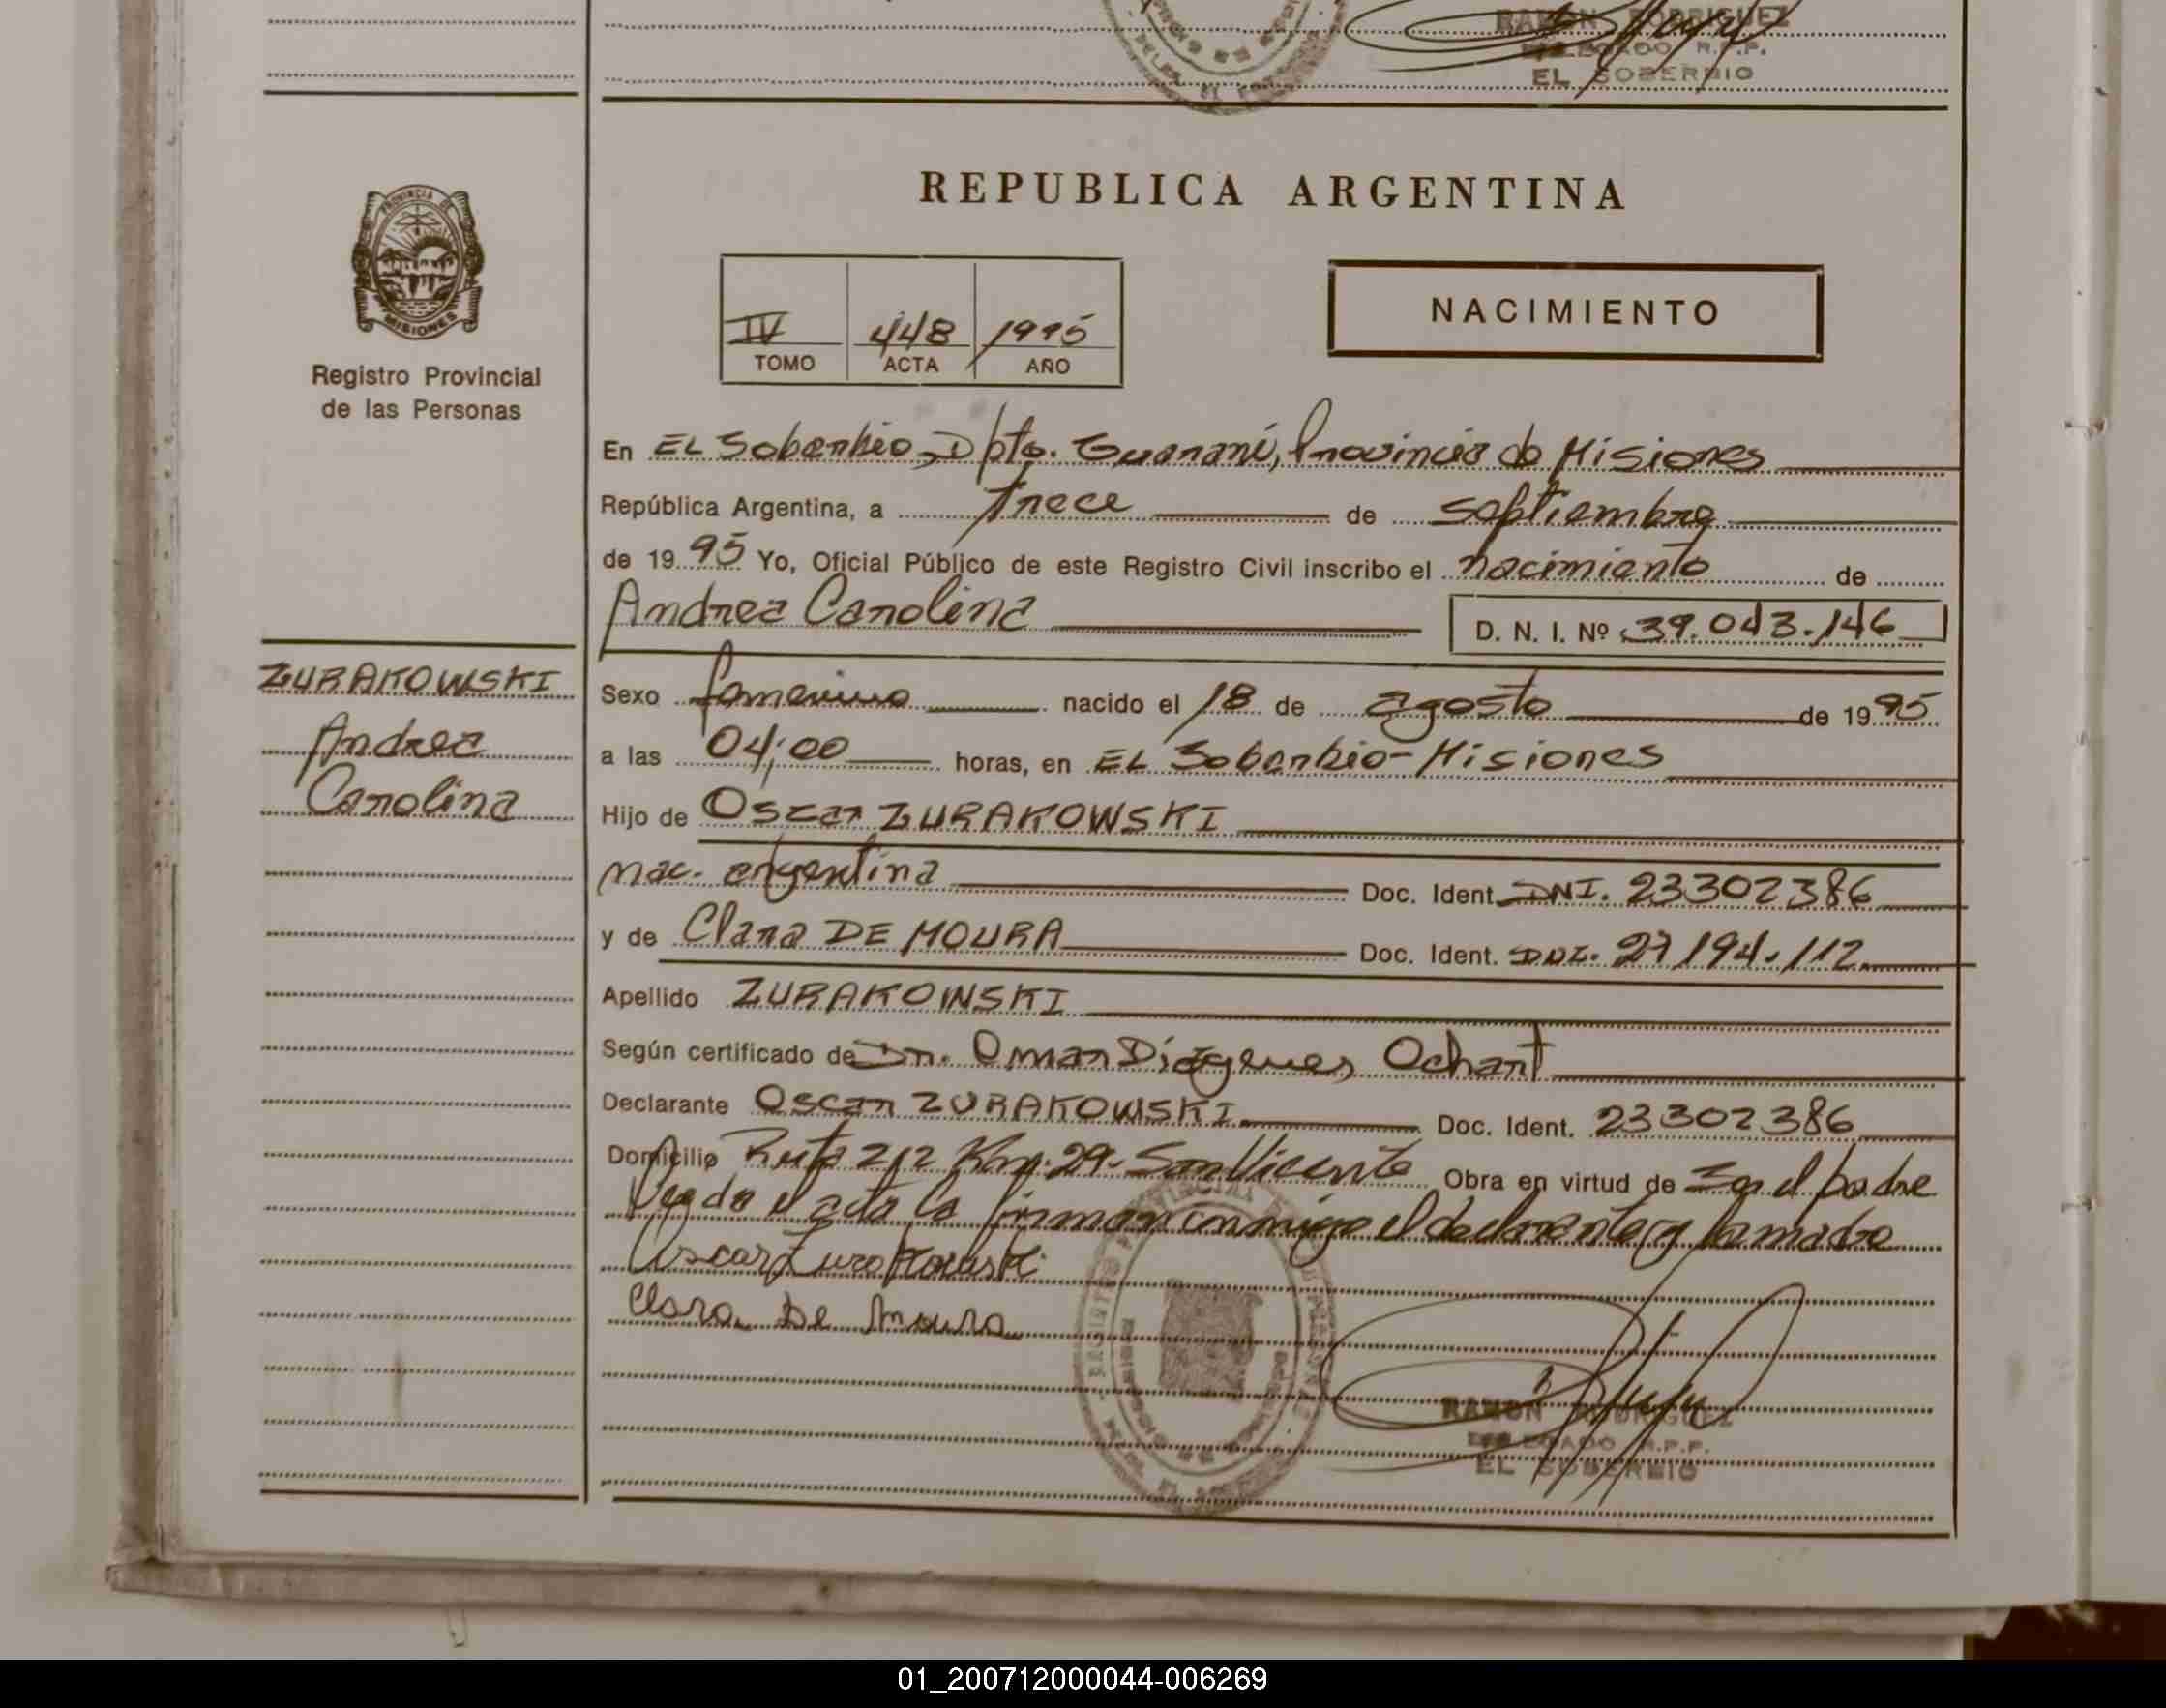 RAMON RODRIGUEZ
DELEGADO R.P.P.
EL SOBERBIO
PROVINCIA DE
MISIONES
Registro Provincial
de las Personas
REPUBLICA ARGENTINA
IV 448 1995
TOMO ACTA AÑO
NACIMIENTO
En EL Soberbio, Dpto. Guaraní, Provincia de Misiones
República Argentina, a trece de septiembre
de 1995 Yo, Oficial Público de este Registro Civil inscribo el nacimiento de
Andrea Carolina D. N. I. Nº 39.043.146
ZURAKOWSKI
Andrea
Carolina
Sexo femenino nacido el 18 de agosto de 1995
a las 04;00 horas, en EL Soberbio-Misiones
Hijo de Oscar ZURAKOWSKI
nac. argentina Doc. Ident. DNI. 23302386
y de Clara DE MOURA Doc. Ident. DNI. 27194.112
Apellido ZURAKOWSKI
Según certificado de Dr. Omar Diógenes Ochart
Declarante Oscar ZURAKOWSKI Doc. Ident. 23302386
Domicilio Ruta 212 Km. 29- San Vicente Obra en virtud de Ser el padre
Leyda el acta la firman conmigo el declarante y la madre
Oscar Zurakowski
Clara De Moura
RAMON RODRIGUEZ
DELEGADO R.P.P.
EL SOBERBIO
01_200712000044-006269